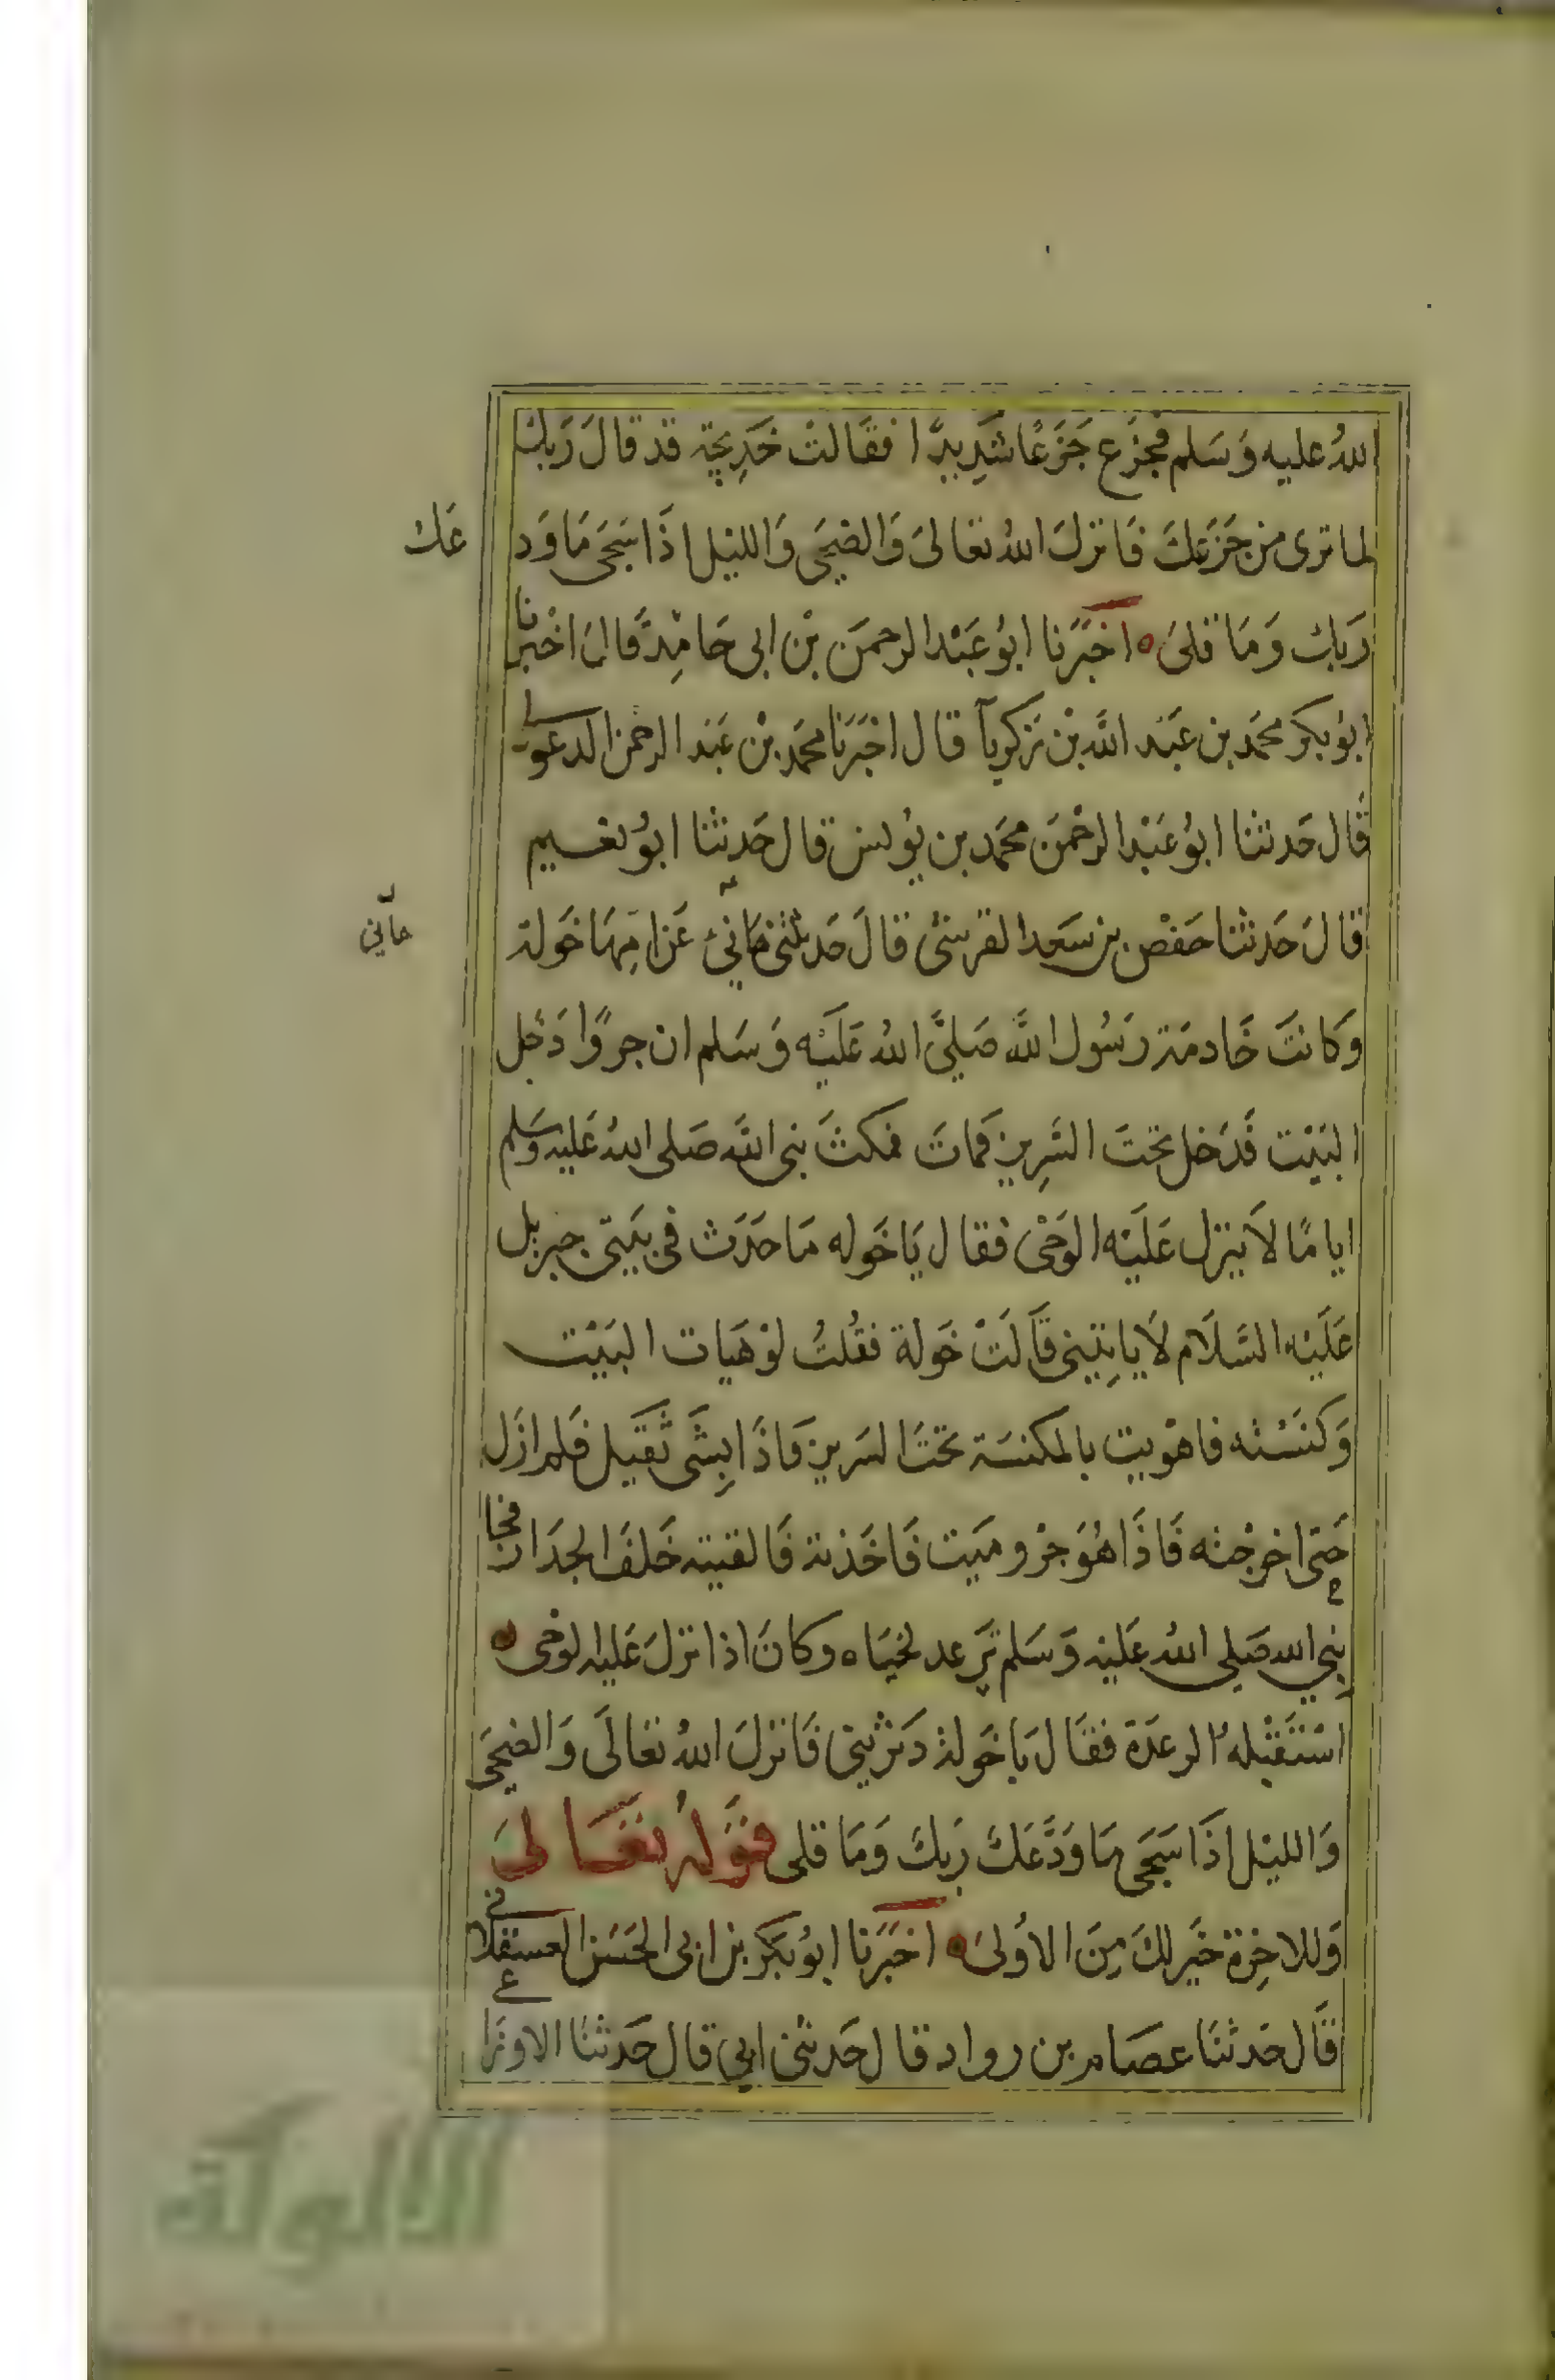 الله عليه وسلم فجزع جزعا شديدا فقالت خديجة قد قال ربك
لما ترى من جزعك فانزل الله تعالى والضحى والليل اذا سجى ما ود
عك
ربك وما قلى اخبرنا ابو عبد الرحمن بن ابى حامد قال اخبرنا
ابو بكر محمد بن عبد الله بن زكريا قال اخبرنا محمد بن عبد الرحمن الدغولى
قال حدثنا ابو عبد الرحمن محمد بن يونس قال حدثنا ابو نعيم
قال حدثنا حفص بن سعد القرشى قال حدثتنى عن امها خولة
وكانت خادمة رسول الله صلى الله عليه وسلم ان جروا دخل
البيت فدخل تحت السرير فمات فمكث نبى الله صلى الله عليه وسلم
اياما لا ينزل عليه الوحى فقال يا خوله ما حدث فى بيتى جبريل
عليه السلام لا ياتينى قالت خولة فقلت لو هيات البيت
وكنسته فاهويت بالمكنسة تحت السرير فاذا بشى ثقيل فلم ازل
حتى اخرجته فاذا هو جرو ميت فاخذته فالقيته خلف الجدار فجا
نبي الله صلى الله عليه وسلم ترعد لحياه وكان اذا نزل عليه الوحى
استقبلته الرعدة فقال يا خولة دثرينى فانزل الله تعالى والضحى
والليل اذا سجى ما ودعك ربك وما قلى قوله تعالى
وللاخرة خير لك من الاولى اخبرنا ابو بكر بن ابى الحسن
قال حدثنا عصام بن رواد قال حدثنى ابي قال حدثنا الاوزا
الألوكة